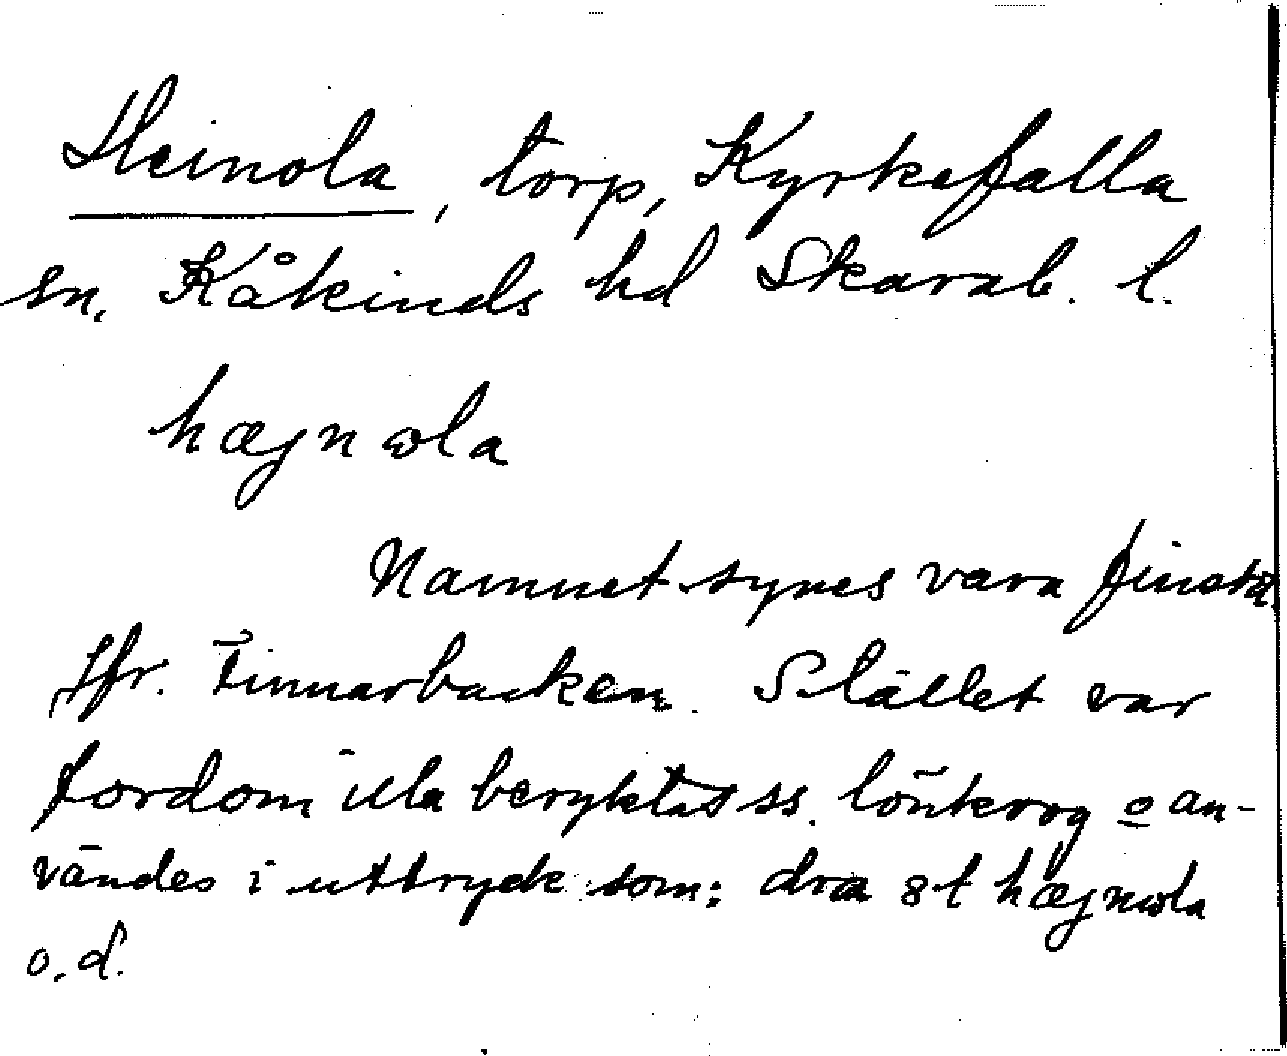 Heinola, torp, Kyrkefalla
sn. Kåkinds hd Skarab. l.
hæjnωla
Namnet synes vara finskt.
Jfr. Finnarbacken. Stället var
fordom illa beryktat ss. lönkrog o an-
vändes i uttryck som: dra 8t hæjnωla
o.d.